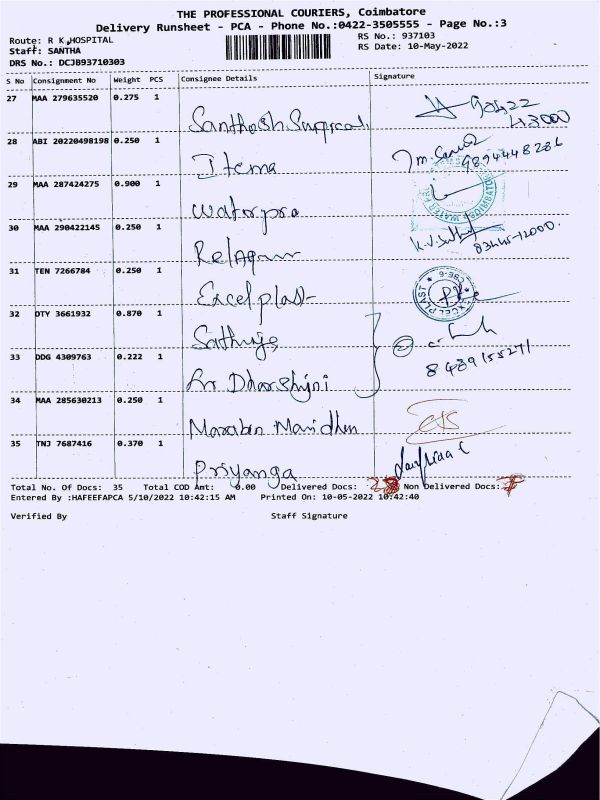 THE PROFESSIONAL COURIERS, Coimbatore
Delivery Runsheet - PCA - Phone No.:0422-3505555 - Page No.:3
Route: R K HOSPITAL
RS No.: 937103
Staff: SANTHA
RS Date: 10-May-2022
DRS No.: DCJB93710303
S No Consignment No Weight PCS Consignee Details Signature
27 MAA 279635520 0.275 1
Santhosh
28 ABI 20220498198 0.250 1
Itema
9894448286
29 MAA 287424275 0.900 1
Waterpro
30 MAA 290422145 0.250 1
31 TEN 7266784 0.250 1
Excel plast
EXCEL PLAST
32 DTY 3661932 0.870 1
33 DDG 4309763 0.222 1
Dharshini
8489155271
34 MAA 285630213 0.250 1
35 TNJ 7687416 0.370 1
Priyanga
Total No. Of Docs: 35 Total COD Amt: 0.00 Delivered Docs: 28 Non Delivered Docs: 7
Entered By :HAFEEFAPCA 5/10/2022 10:42:15 AM Printed On: 10-05-2022 10:42:40
Verified By Staff Signature